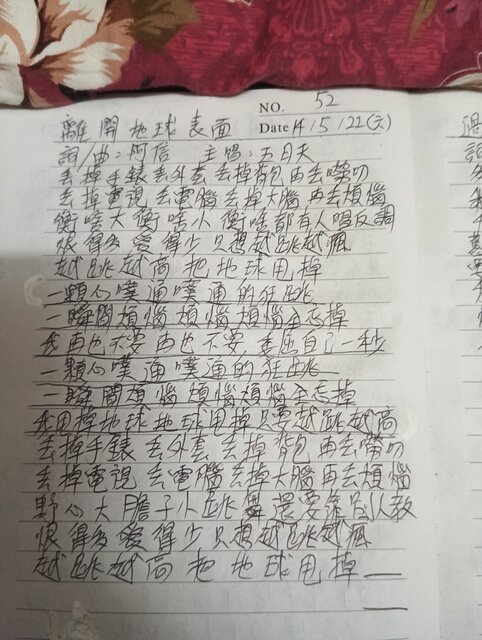 NO. 52
離開地球表面 Date 14/5/22(六)
詞/曲:阿信 主唱:五月天
丟掉手錶丟外套 丟掉背包再丟嘮叨
丟掉電視 丟電腦 丟掉大腦 再丟煩惱
衝啥大 衝啥小 衝啥都有人唱反調
恨得多 愛得少 只想越跳越瘋
越跳越高把地球甩掉
一顆心噗通噗通的狂跳
一瞬間煩惱煩惱煩惱全忘掉
我再也不要再也不要 委屈自己一秒
一顆心噗通噗通的狂跳
一瞬間煩惱煩惱煩惱全忘掉
我甩掉地球地球甩掉只要越跳越高
丟掉手錶 丟外套 丟掉背包 再丟嘮叨
丟掉電視 丟電腦丟掉大腦再丟煩惱
野心大膽子小跳舞還要靠別人教
恨得多愛得少只想越跳越瘋
越跳越高 把地球甩掉